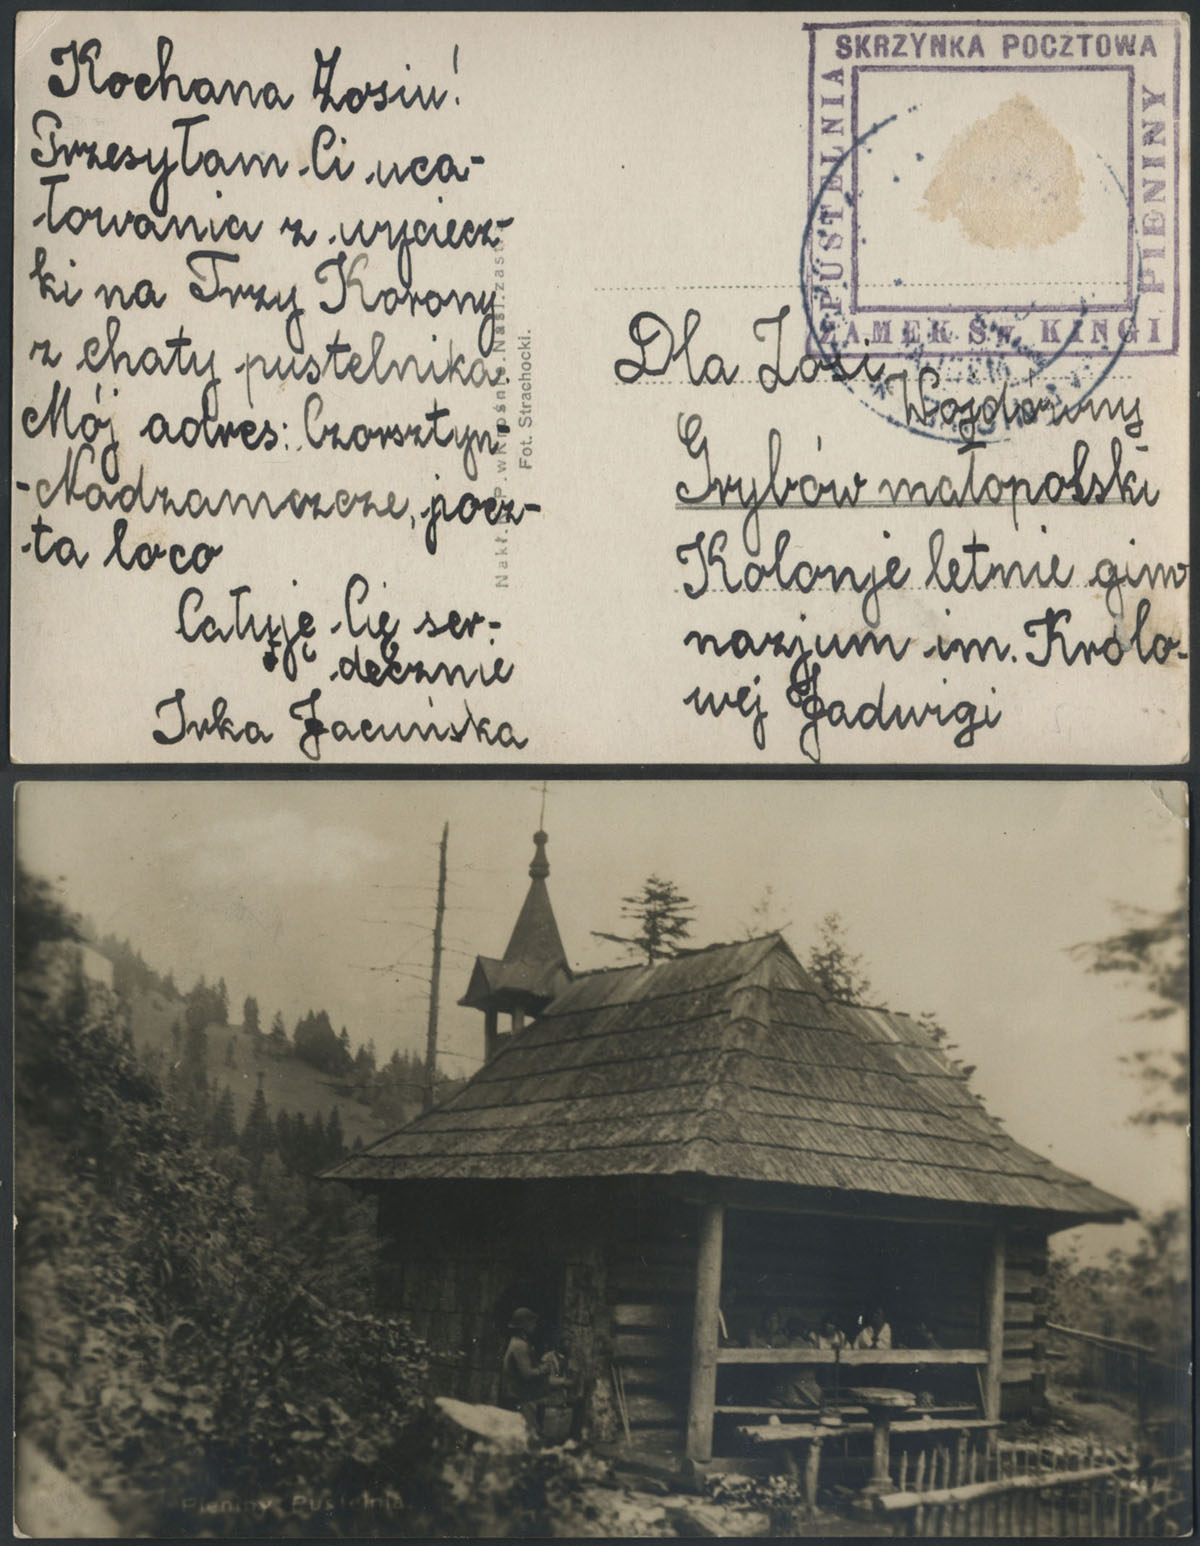 Kochana Zosiu!
Przesyłam Ci uca-
łowania z wyciecz-
ki na Trzy Korony
z chaty pustelnika.
Mój adres: Czorsztyn
-Nadzamcze, pocz-
ta loco
Całuję Cię ser-
decznie
Irka Jacuńska
Fot. Strachocki.
SKRZYNKA POCZTOWA
PUSTELNIA
PIENINY
ZAMEK Św. KINGI
Dla Zosi
Wojdówny
Grybów małopolski
Kolonje letnie gim
nazjum im. Królo-
wej Jadwigi
Pieniny Pustelnia